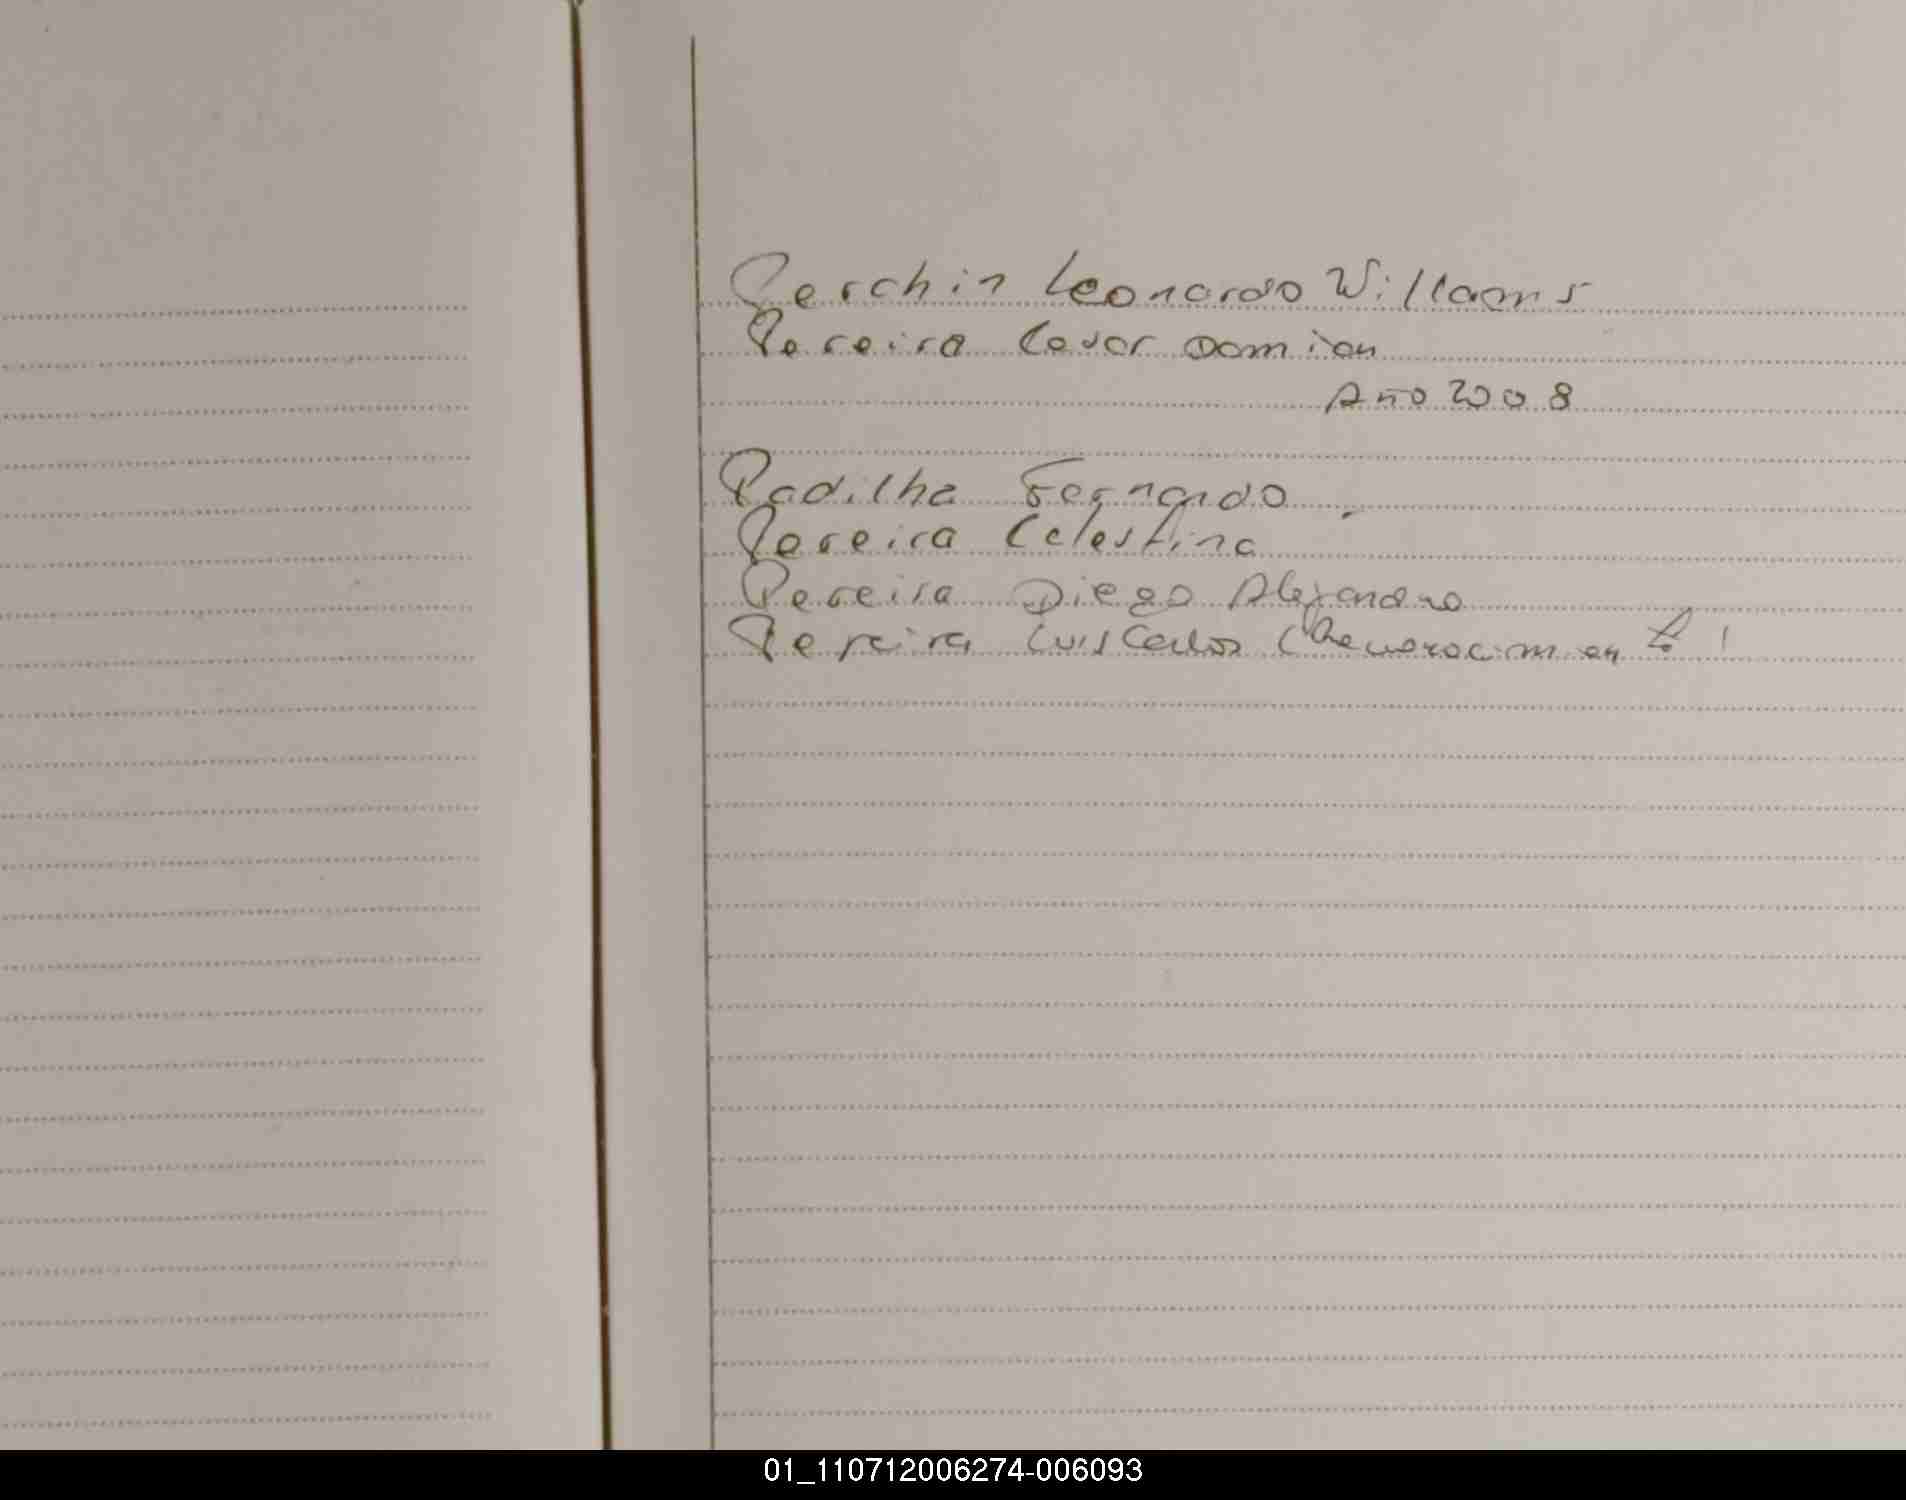 Perchin Leonardo Williams
Pereira Cesar Damian
Año 2008
Padilha Fernando
Pereira Celestina
Pereira Diego Alejandro
Pereira Luis Carlos
01_110712006274-006093